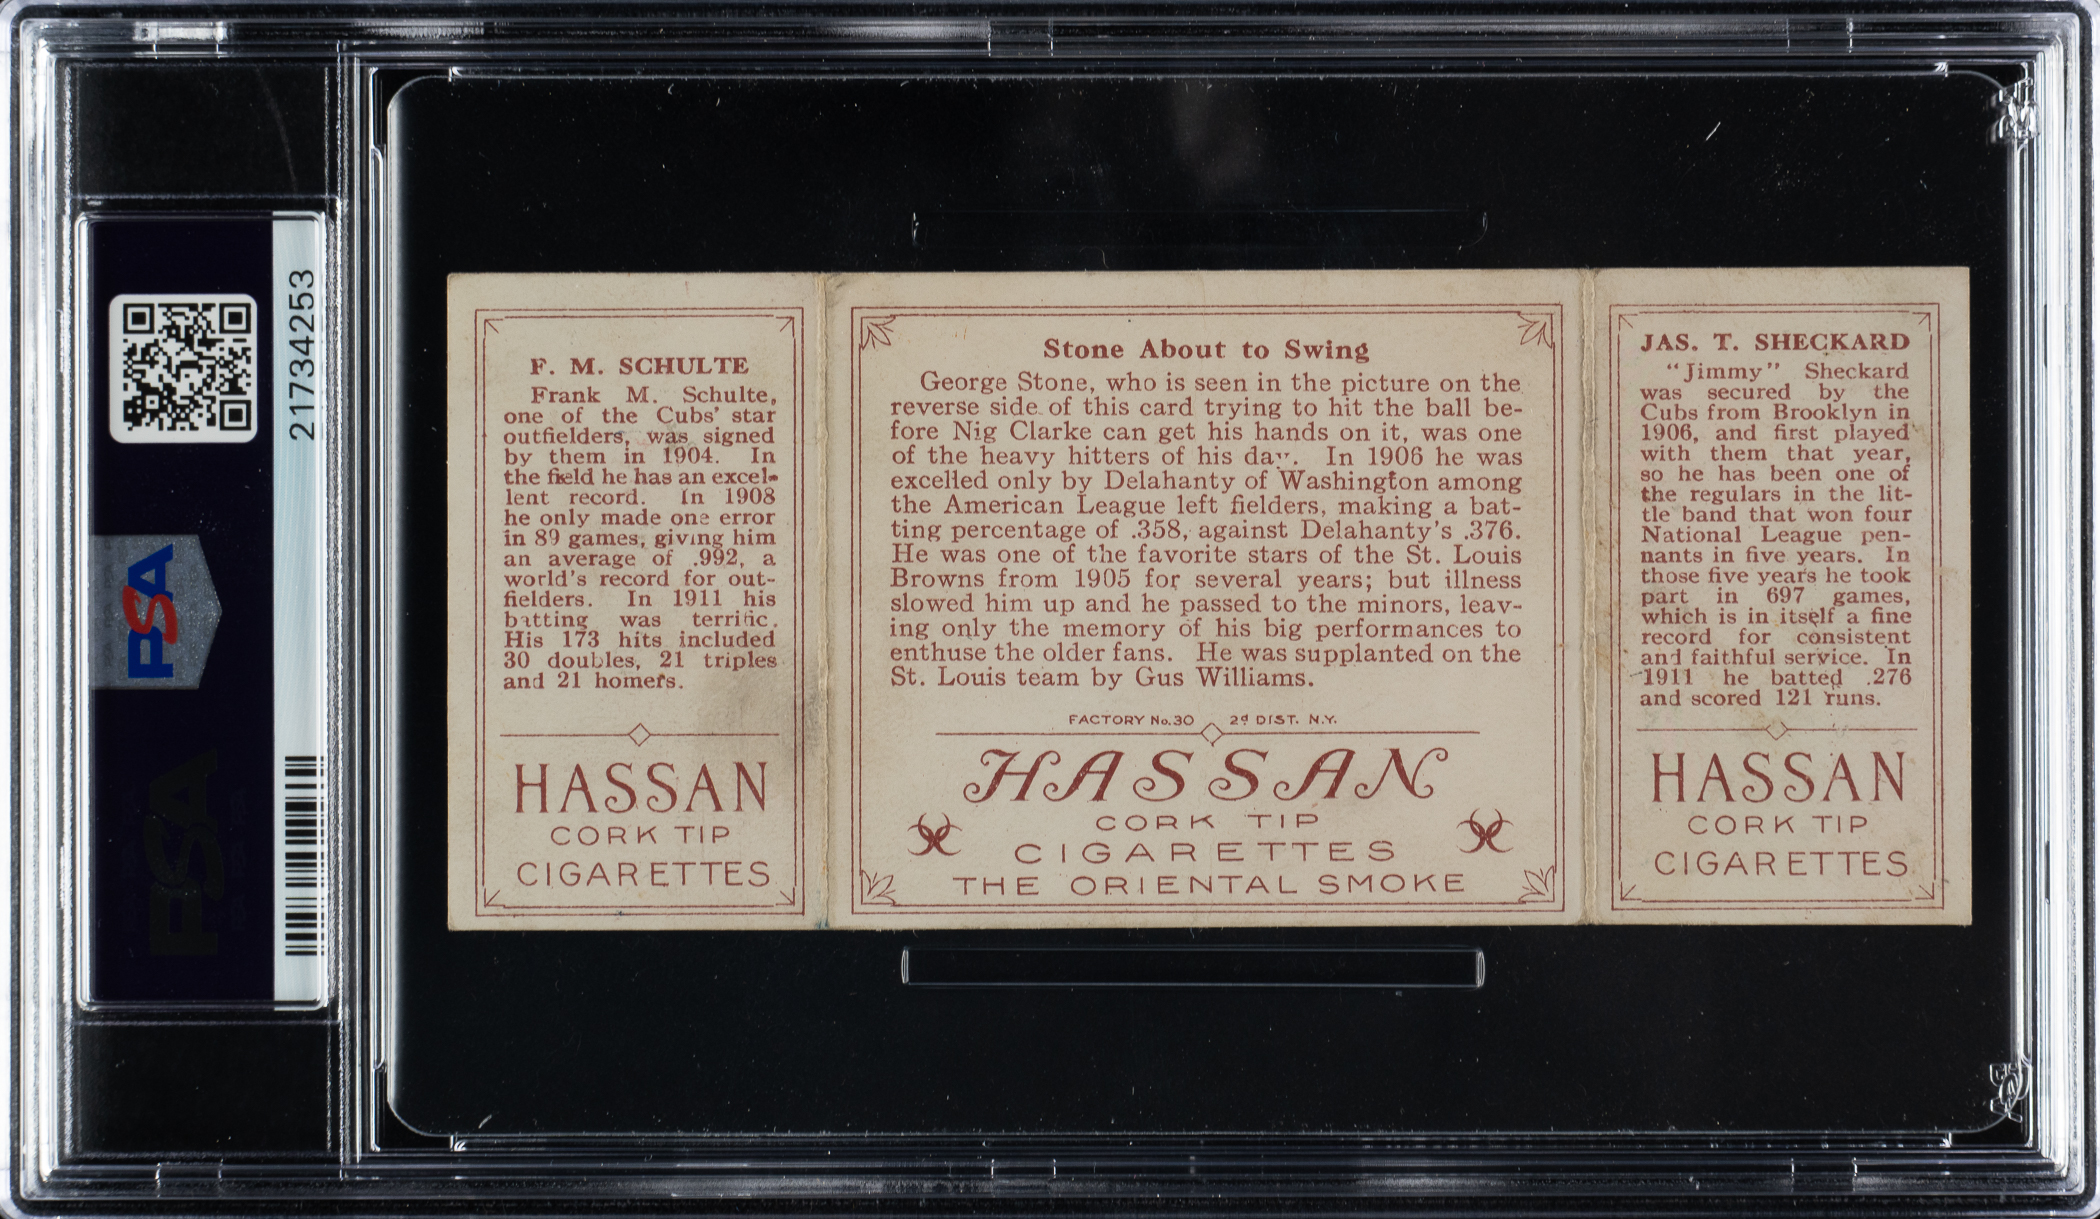 21734253
PSA
PSA
F. M. SCHULTE
Frank M. Schulte,
one of the Cubs' star
outfielders, was signed
by them in 1904. In
the field he has an excel-
lent record. In 1908
he only made one error
in 89 games, giving him
an average of .992, a
world's record for out-
fielders. In 1911 his
batting was terrific.
His 173 hits included
30 doubles, 21 triples
and 21 homers.
HASSAN
CORK TIP
CIGARETTES
Stone About to Swing
George Stone, who is seen in the picture on the
reverse side of this card trying to hit the ball be-
fore Nig Clarke can get his hands on it, was one
of the heavy hitters of his day. In 1906 he was
excelled only by Delahanty of Washington among
the American League left fielders, making a bat-
ting percentage of .358, against Delahanty's .376.
He was one of the favorite stars of the St. Louis
Browns from 1905 for several years; but illness
slowed him up and he passed to the minors, leav-
ing only the memory of his big performances to
enthuse the older fans. He was supplanted on the
St. Louis team by Gus Williams.
FACTORY No.30 2d DIST. N.Y.
HASSAN
CORK TIP
CIGARETTES
THE ORIENTAL SMOKE
JAS. T. SHECKARD
"Jimmy" Sheckard
was secured by the
Cubs from Brooklyn in
1906, and first played
with them that year,
so he has been one of
the regulars in the lit-
tle band that won four
National League pen-
nants in five years. In
those five years he took
part in 697 games,
which is in itself a fine
record for consistent
and faithful service. In
1911 he batted .276
and scored 121 runs.
HASSAN
CORK TIP
CIGARETTES